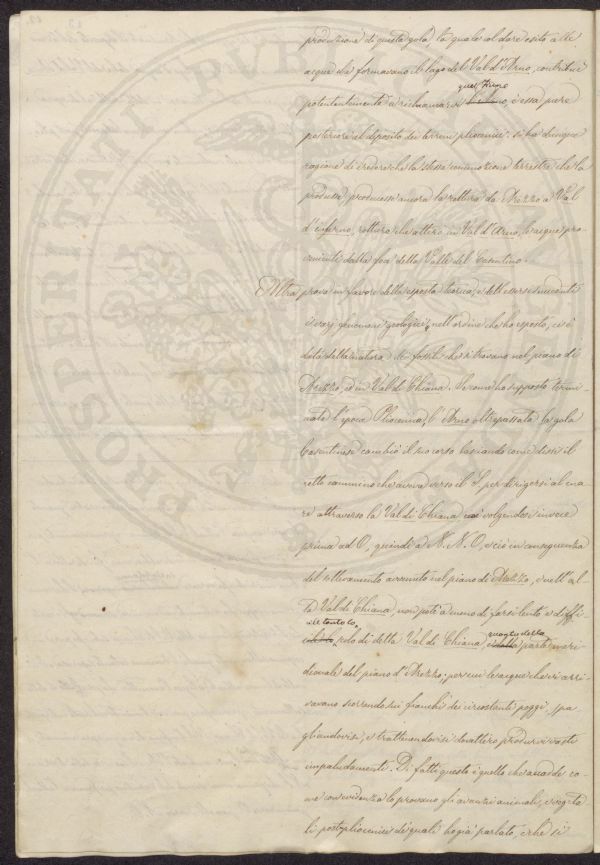 produzione di questa gola la quale col dare esito alle
acque che formavano il lago del Val d'Arno, contribuì
quel fiume
potentemente a richiamarvi, è essa pure
posteriore al deposito dei terreni pliocenici: si ha dunque
ragione di credere che la stessa commozione terrestre che la
produsse, promosse ancora la rottura da Arezzo a Val
d'inferno, rottura che attirò in Val d'Arno, le acque pro-
venienti dalla foce della Valle del Casentino.
Altra prova in favore della esposta teorica, e dell'essersi succeduti
i varj fenomeni geologici, nell'ordine che ho esposto, ci è
data dalla natura dei fossili che si trovano nel piano di
Arezzo, ed in Val di Chiana. Se come ho supposto termi-
nata l'epoca Pliocenica, l'Arno oltrepassata la gola
Casentinese cambiò il suo corso lasciando come dissi il
retto cammino che aveva verso il S. per dirigersi al ma-
re attraverso la Val di Chiana, volgendosi invece
prima ad O, quindi a N. N. O, e ciò in conseguenza
del sollevamento avvenuto nel piano di Arezzo, e nell'al-
ta Val di Chiana, non potè a meno di farsi lento e diffi-
cile lo scolo di detta Val di Chiana e della parte meri-
dionale del piano d'Arezzo; per cui le acque che vi arri-
vavano scorrendo sui fianchi dei circostanti poggi, spa-
gliandovisi, e trattenendovisi dovettero produrvi vasti
impaludamenti. Di fatti questo è quello che accadde co-
me con evidenza lo provano gli avanzi animali, e vegeta-
li postpliocenici de' quali ho già parlato, e che si
PROSPERITATI PVB